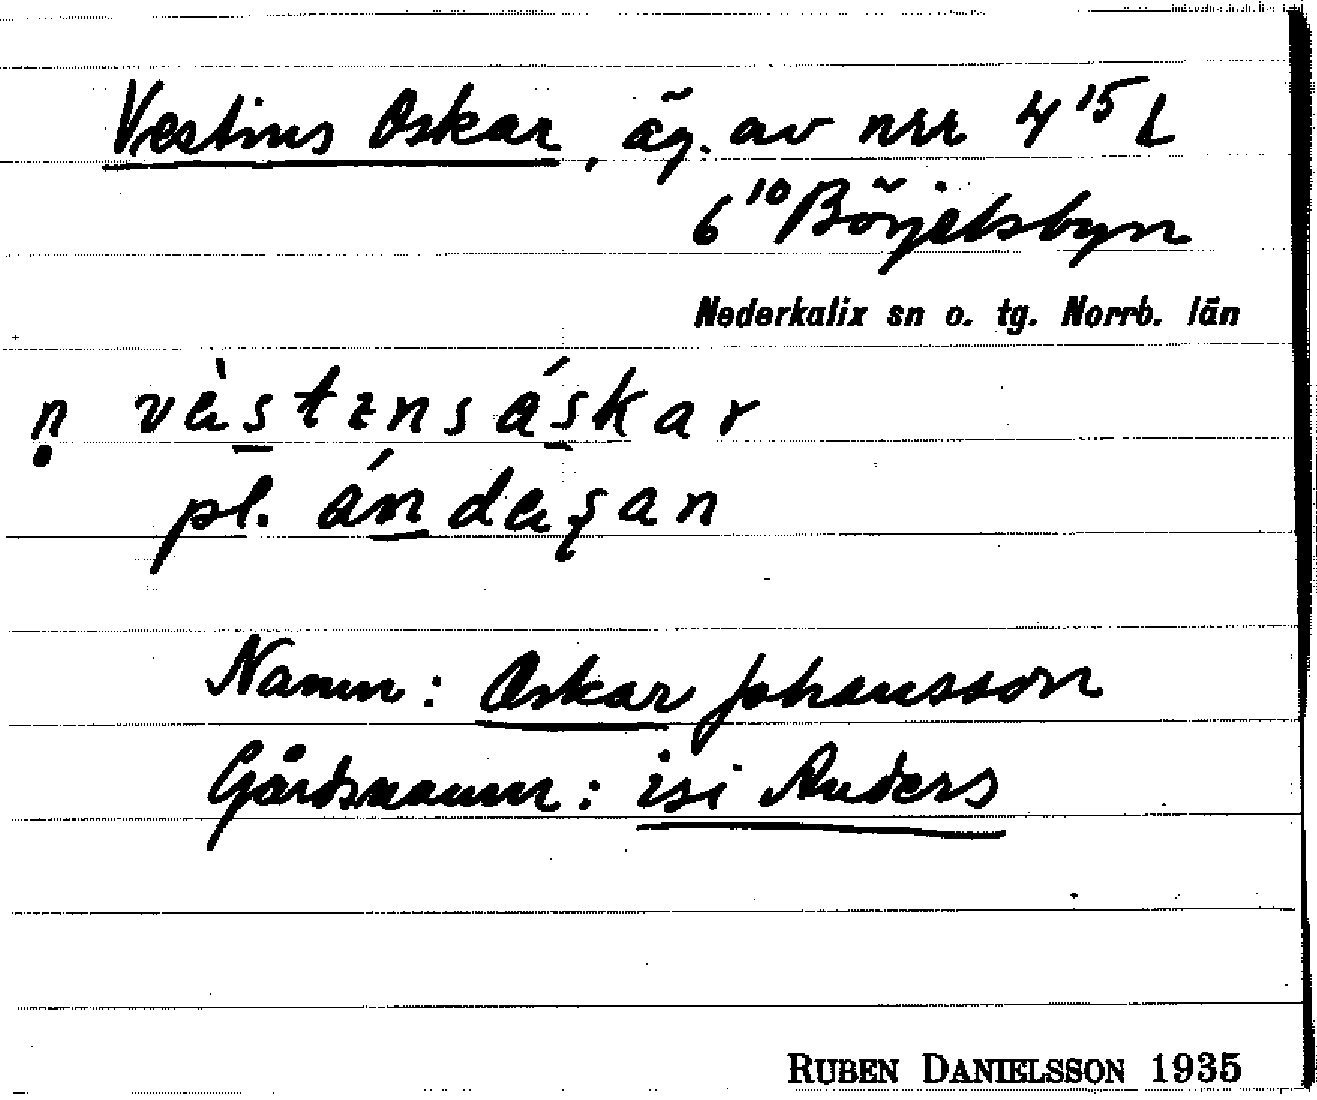 Vestins Oskar, äg. av nrr 4¹⁵ L
6¹⁰ Börjelsbyn
Nederkalix sn o. tg. Norrb. län
pl.
Namn: Oskar Johansson
Gårdsnamn: isi Anders
RUBEN DANIELSSON 1935